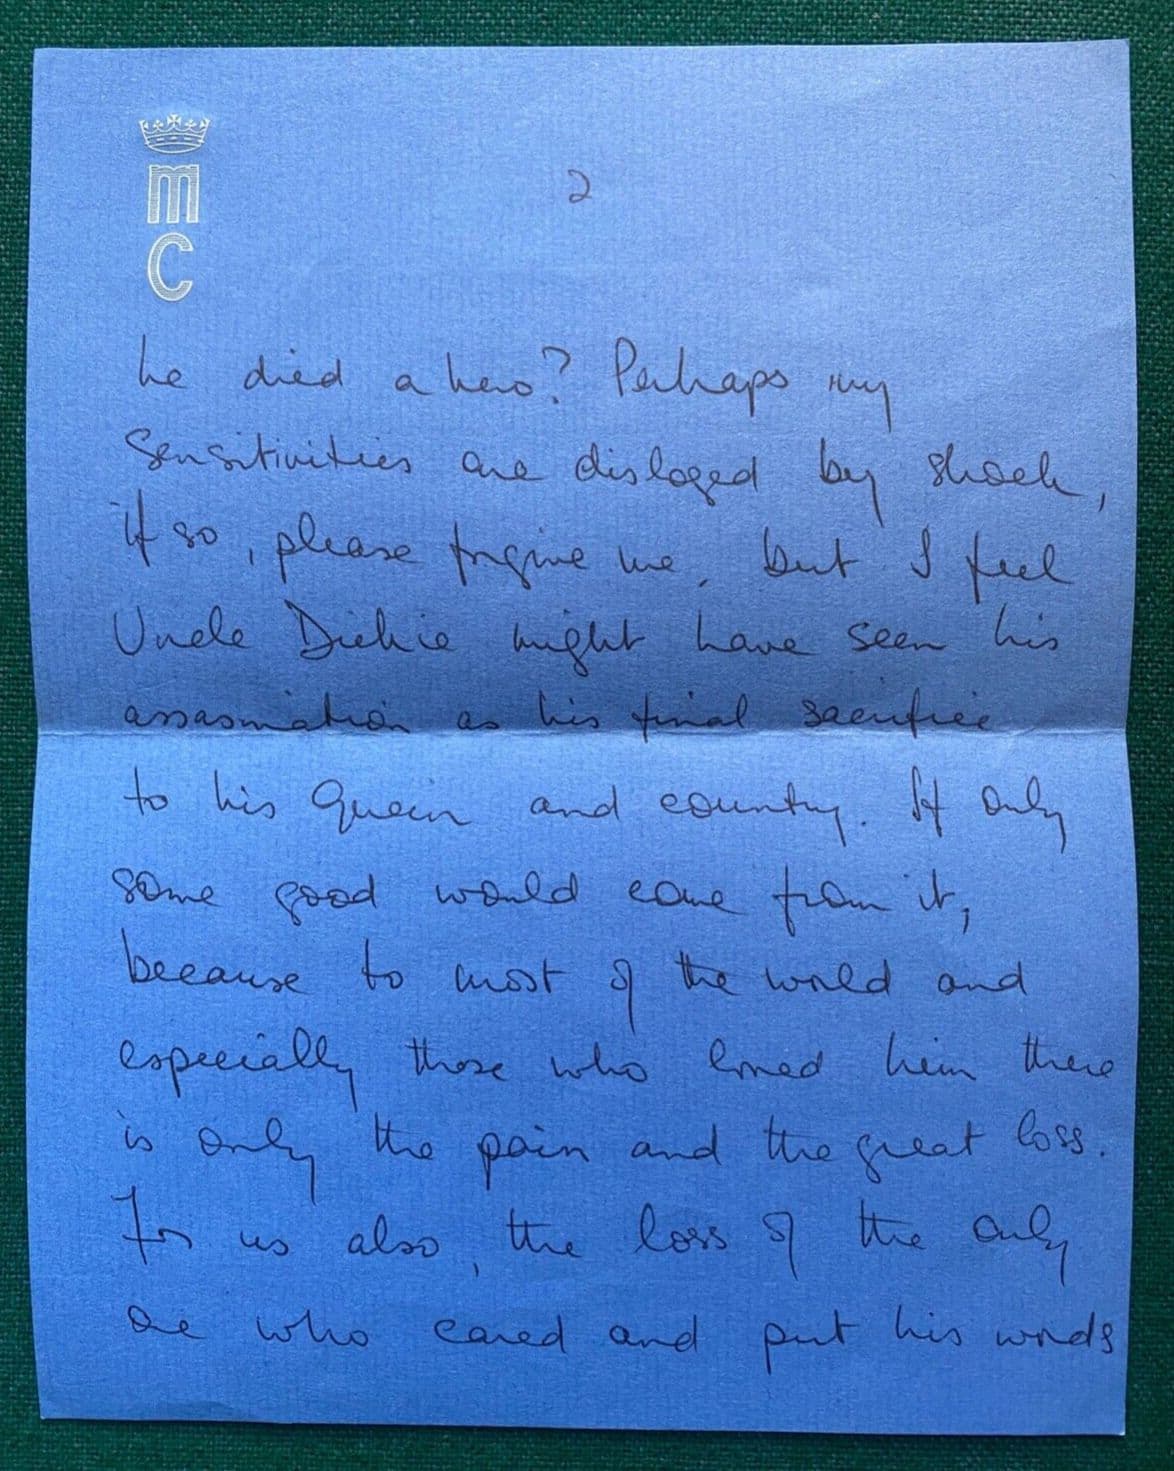 M
C
2
he died a hero? Perhaps my
sensitivities are disloged by shock,
if so, please forgive me, but I feel
Uncle Dickie might have seen his
assasination as his final sacrifice
to his Queen and country. If only
some good would come from it,
because to most of the world and
especially those who loved him there
is only the pain and the great loss.
For us also, the loss of the only
one who cared and put his words